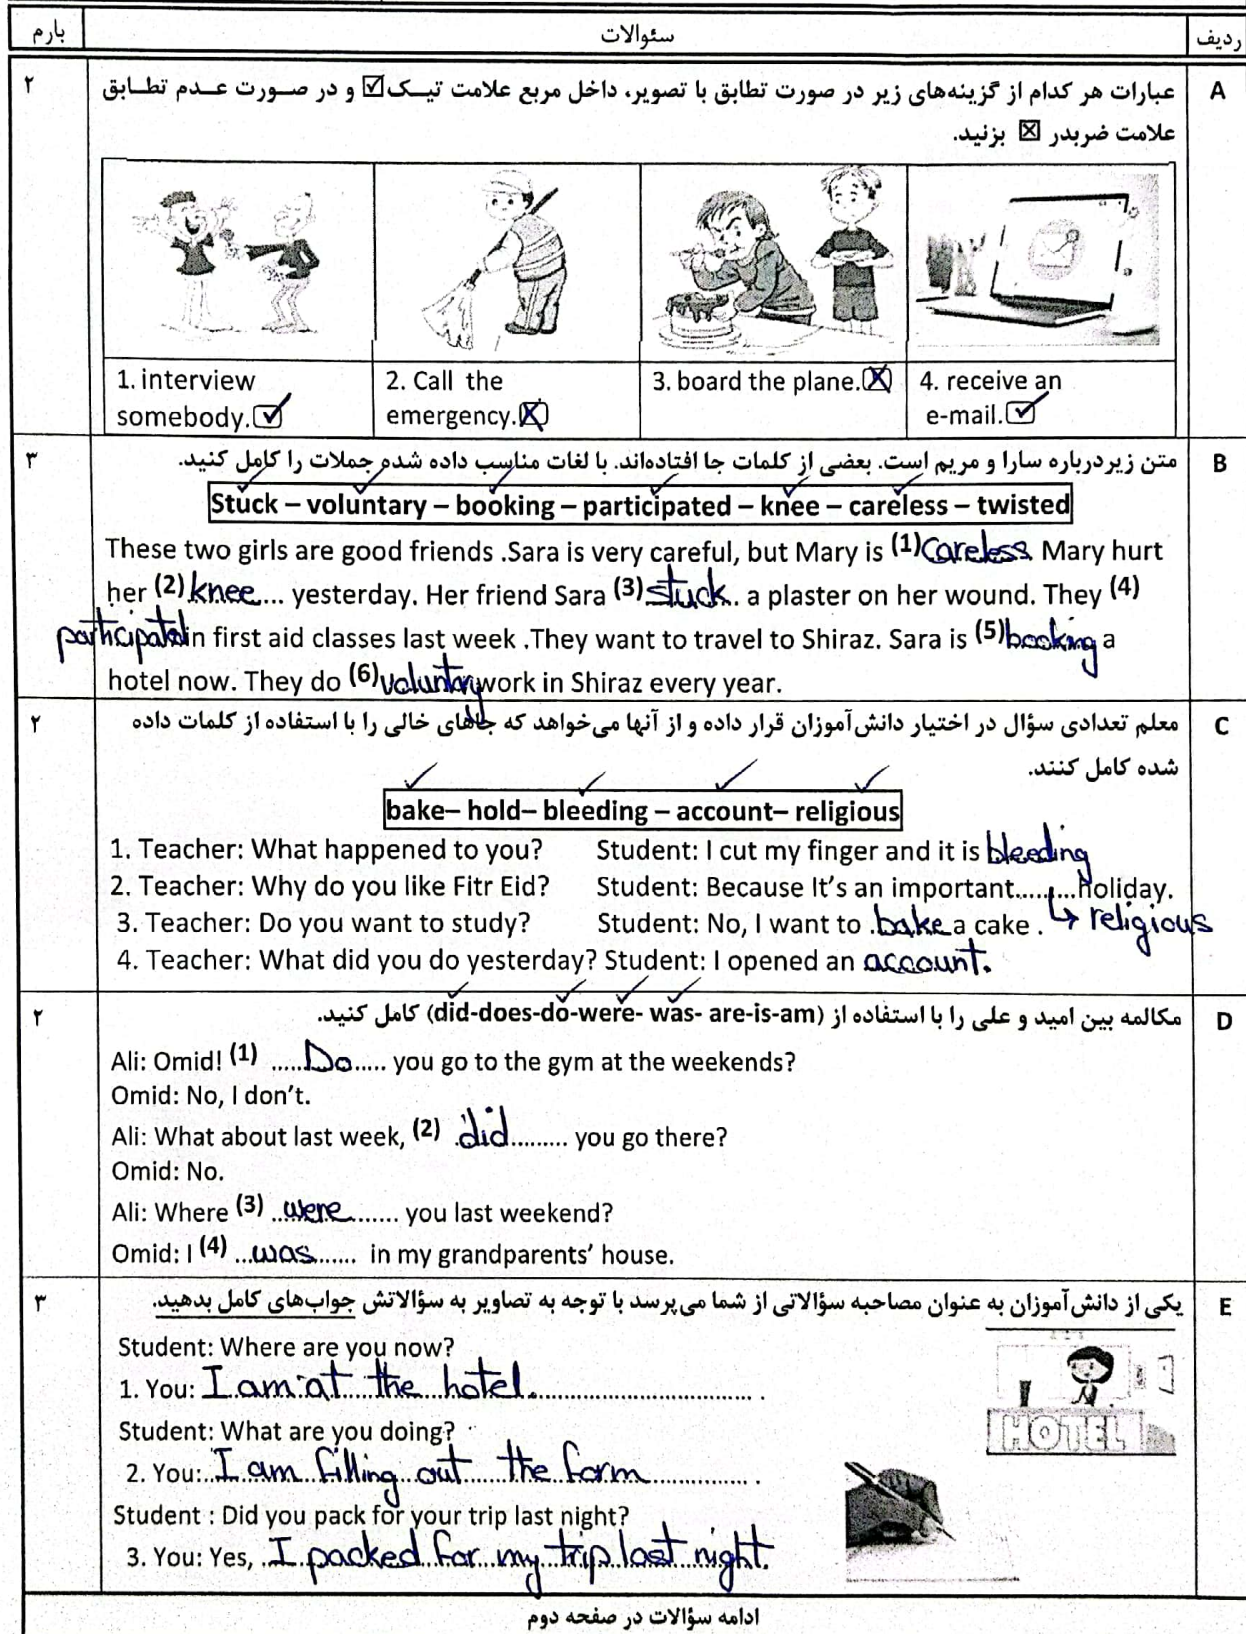 بارم سئوالات ردیف
A عبارات هر کدام از گزینه‌های زیر در صورت تطابق با تصویر، داخل مربع علامت تیک ☑ و در صورت عدم تطابق ۲
علامت ضربدر ☒ بزنید.
1. interview somebody. ☑
2. Call the emergency. ☒
3. board the plane. ☒
4. receive an e-mail. ☑
B متن زیر درباره سارا و مریم است. بعضی از کلمات جا افتاده‌اند. با لغات مناسب داده شده جملات را کامل کنید. ۳
Stuck – voluntary – booking – participated – knee – careless – twisted
These two girls are good friends .Sara is very careful, but Mary is (1) Careless. Mary hurt
her (2) knee.... yesterday. Her friend Sara (3) stuck.. a plaster on her wound. They (4)
participated in first aid classes last week .They want to travel to Shiraz. Sara is (5) booking a
hotel now. They do (6) voluntary work in Shiraz every year.
C معلم تعدادی سؤال در اختیار دانش‌آموزان قرار داده و از آنها می‌خواهد که جاهای خالی را با استفاده از کلمات داده ۲
شده کامل کنند.
bake– hold– bleeding – account– religious
1. Teacher: What happened to you? Student: I cut my finger and it is bleeding
2. Teacher: Why do you like Fitr Eid? Student: Because It's an important.........Holiday.
3. Teacher: Do you want to study? Student: No, I want to .bake a cake . ↳ religious
4. Teacher: What did you do yesterday? Student: I opened an account.
D مکالمه بین امید و علی را با استفاده از (did-does-do-were- was- are-is-am) کامل کنید. ۲
Ali: Omid! (1) .....Do..... you go to the gym at the weekends?
Omid: No, I don't.
Ali: What about last week, (2) .did......... you go there?
Omid: No.
Ali: Where (3) ..were....... you last weekend?
Omid: I (4) ...was....... in my grandparents' house.
E یکی از دانش‌آموزان به عنوان مصاحبه سؤالاتی از شما می‌پرسد با توجه به تصاویر به سؤالاتش جواب‌های کامل بدهید. ۳
Student: Where are you now?
1. You: I am at the hotel. .
HOTEL
Student: What are you doing?
2. You: I am filling out the form .
Student : Did you pack for your trip last night?
3. You: Yes, I packed for my trip last night.
ادامه سؤالات در صفحه دوم